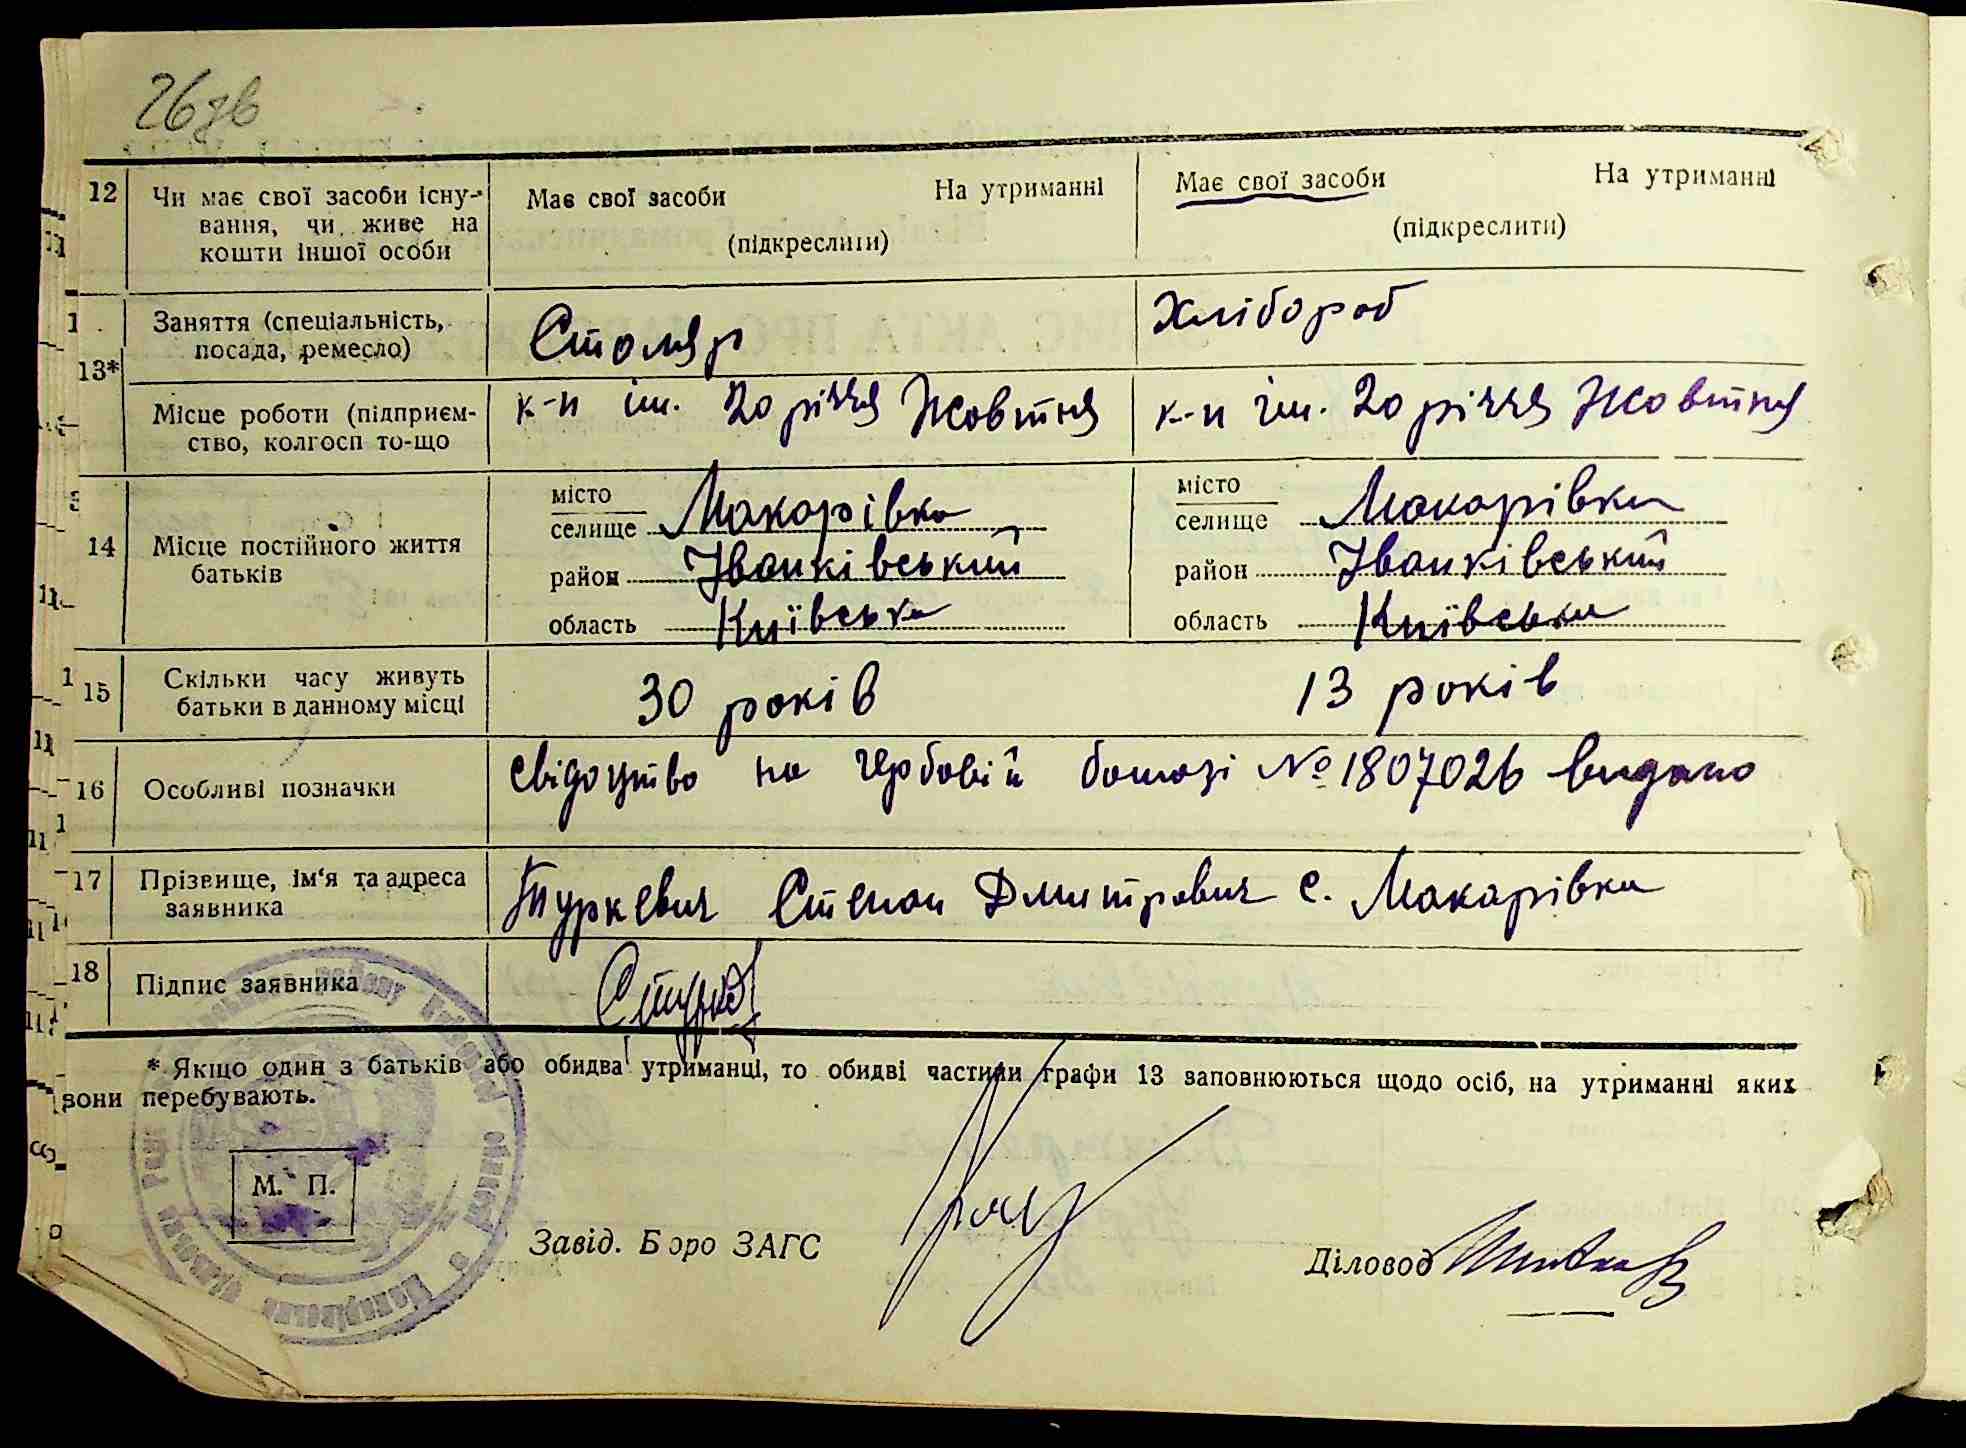 26 зв
12 Чи має свої засоби існу-
вання, чи живе на
кошти іншої особи
Має свої засоби На утриманні
(підкреслити)
Має свої засоби На утриманні
(підкреслити)
13* Заняття (спеціальність,
посада, ремесло)
Столяр
Хлібороб
Місце роботи (підприєм-
ство, колгосп то-що
к-п ім. 20 річчя Жовтня
к-п ім. 20 річчя Жовтня
14 Місце постійного життя
батьків
місто
селище Макарівка
район Іванківський
область Київська
місто
селище Макарівка
район Іванківський
область Київська
15 Скільки часу живуть
батьки в данному місці
30 років
13 років
16 Особливі позначки
свідоцтво на гербовій бомазі № 1807026 видано
17 Прізвище, ім'я та адреса
заявника
Туркевич Степан Дмитрович с. Макарівка
18 Підпис заявника
* Якщо один з батьків або обидва утриманці, то обидві частини графи 13 заповнюються щодо осіб, на утриманні яких
вони перебувають.
М. П.
Завід. Бюро ЗАГС
Діловод